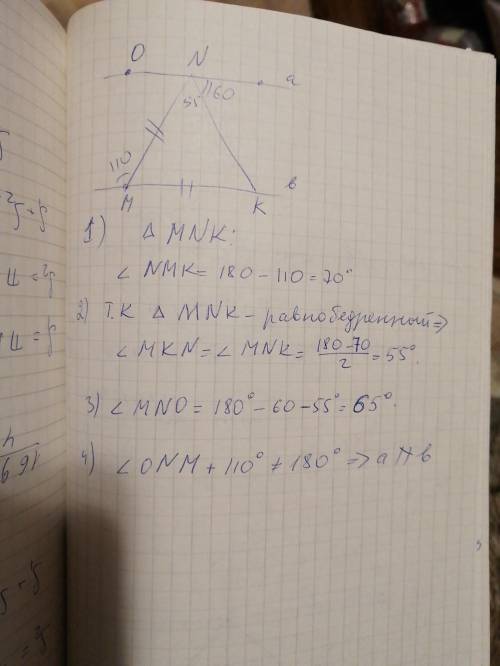 O N a
55 60
110
M K в
1) △ MNK:
∠ NMK = 180 - 110 = 70°
2) Т.К △ MNK - равнобедренный ⇒
∠ MKN = ∠ MNK = (180-70)/2 = 55°.
3) ∠ MNO = 180° - 60 - 55° = 65°.
4) ∠ ONM + 110° ≠ 180° ⇒ a ∦ b